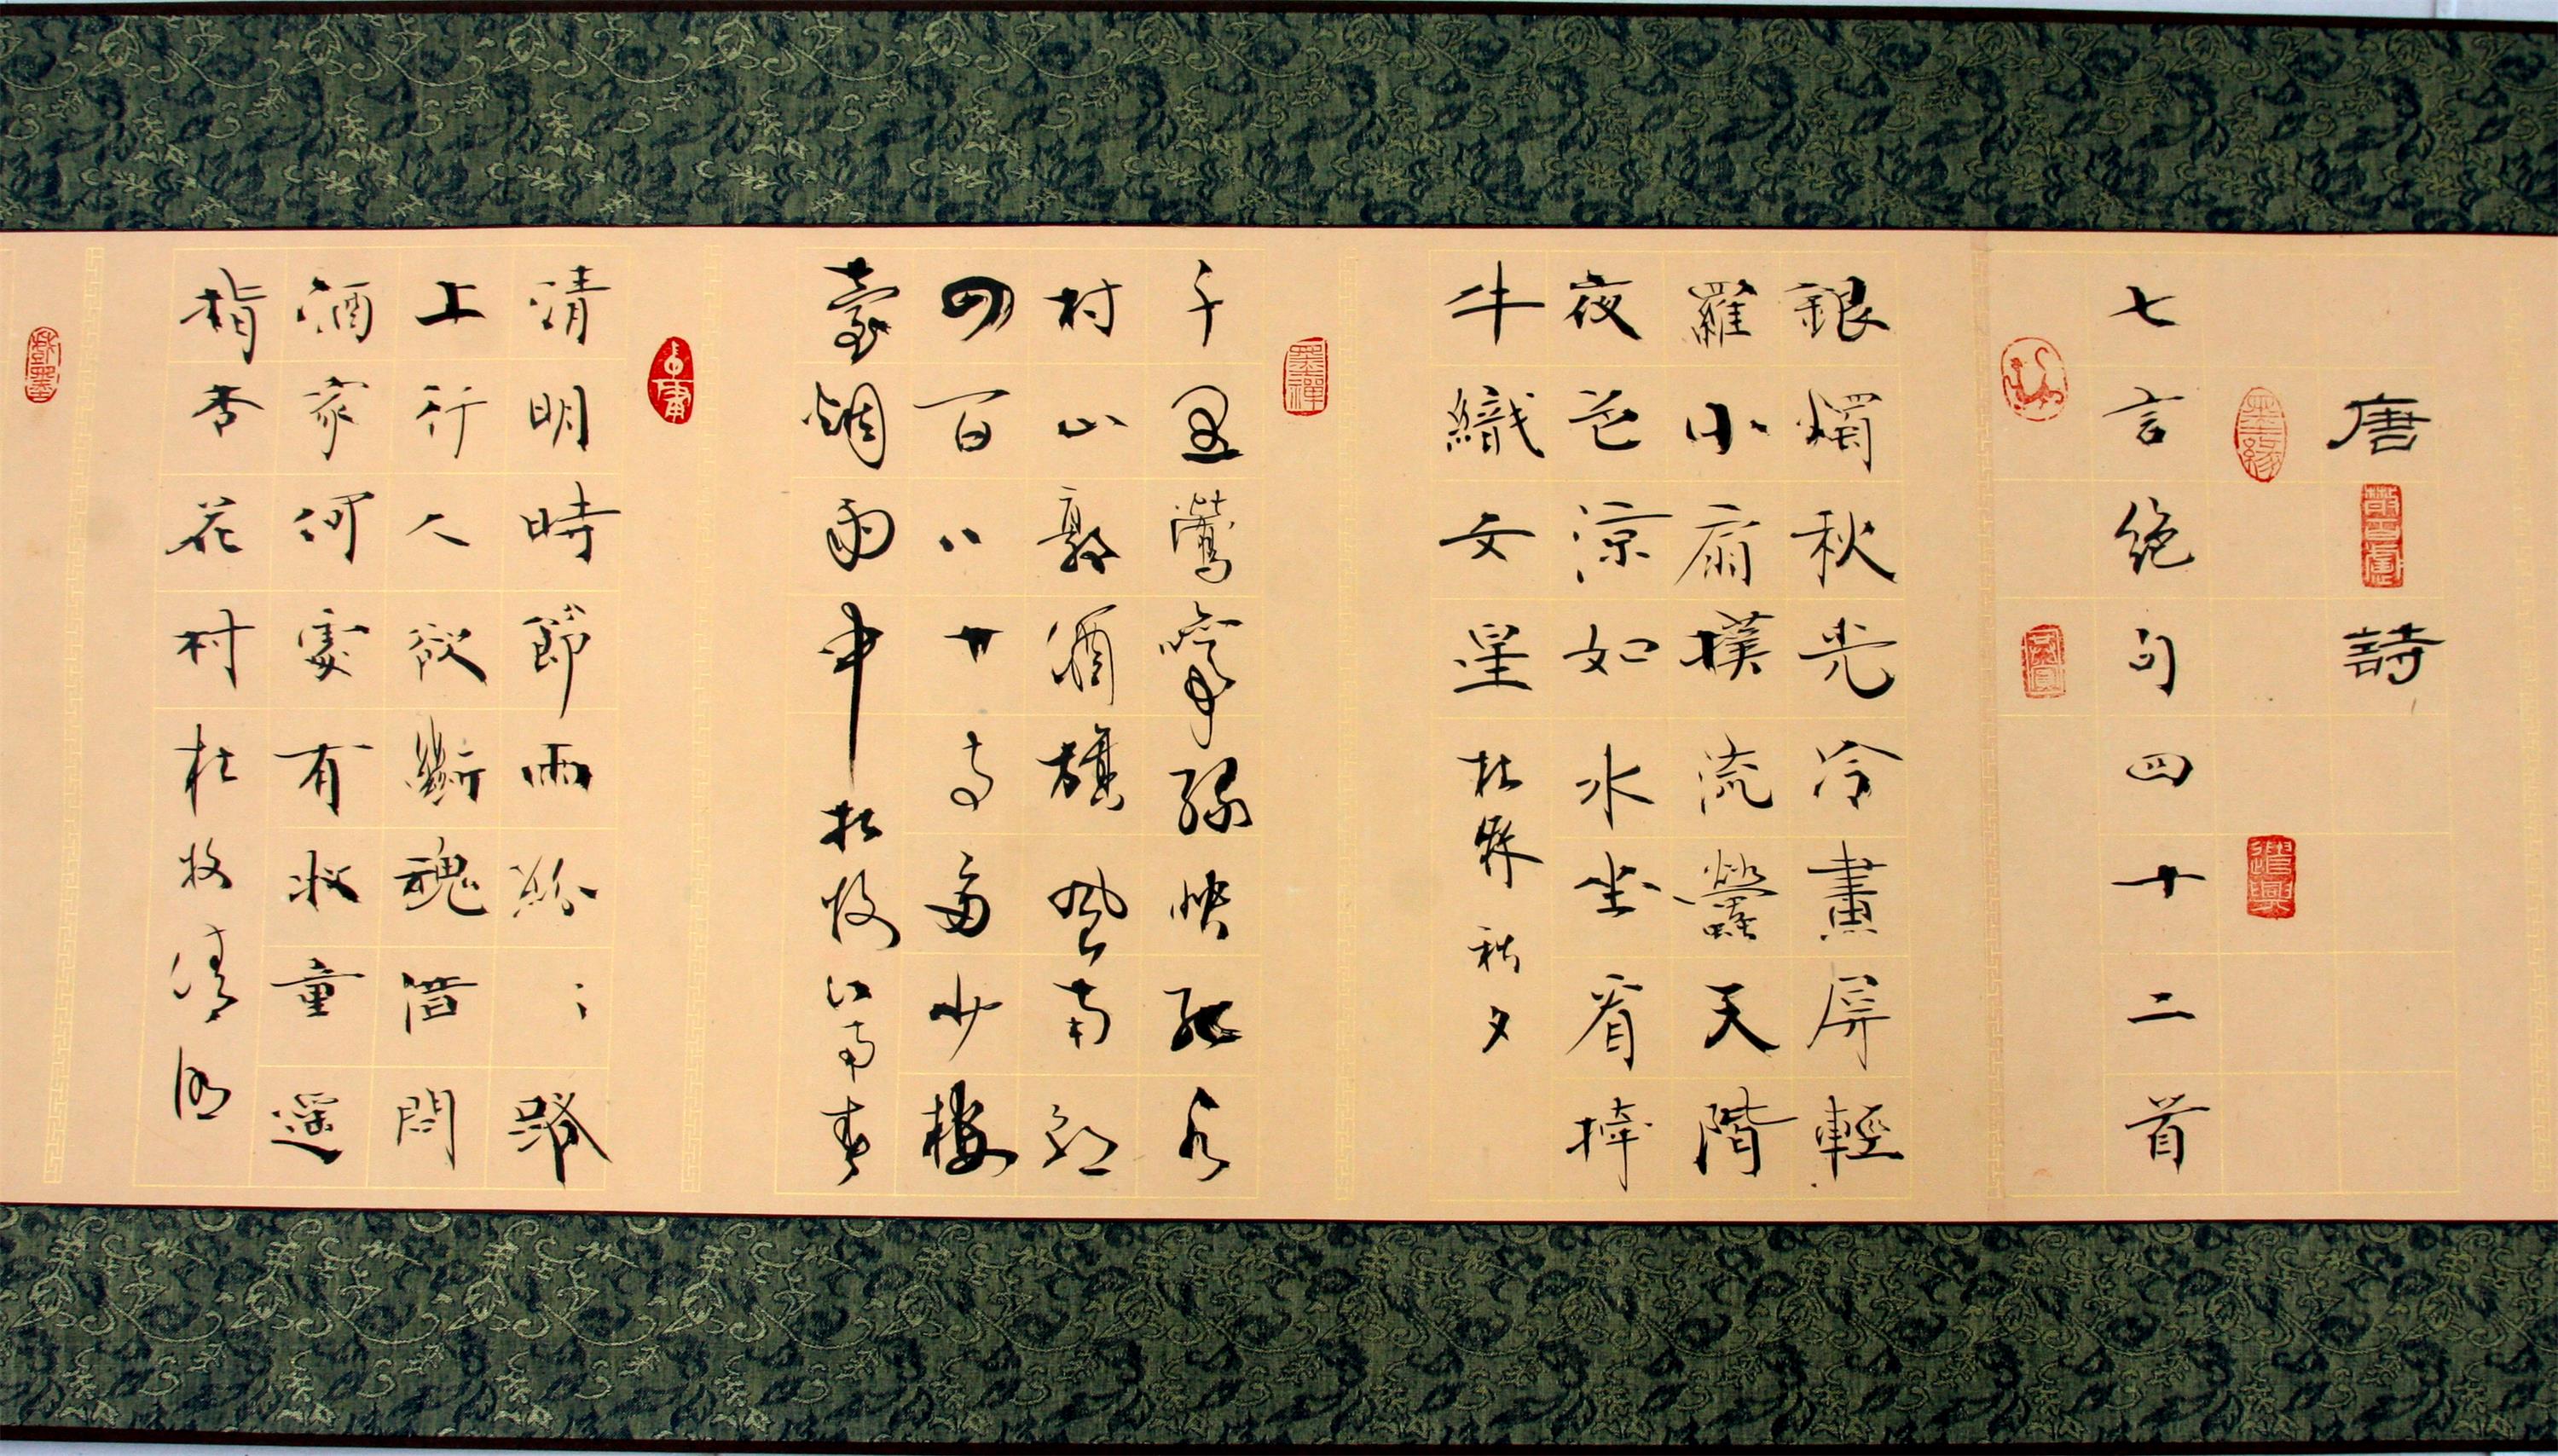 唐詩
墨緣
遣興
七言绝句四十二首
銀燭秋光冷畫屏輕
羅小扇撲流螢天階
夜色涼如水坐看牽
牛織女星 杜 秋夕
墨禪
千里鶯啼綠映紅水
村山郭酒旗風南朝
四百八十寺多少樓
臺烟雨中 杜牧江南春
清明時節雨紛〻路
上行人欲斷魂借問
酒家何處有牧童遥
指杏花村杜牧清明